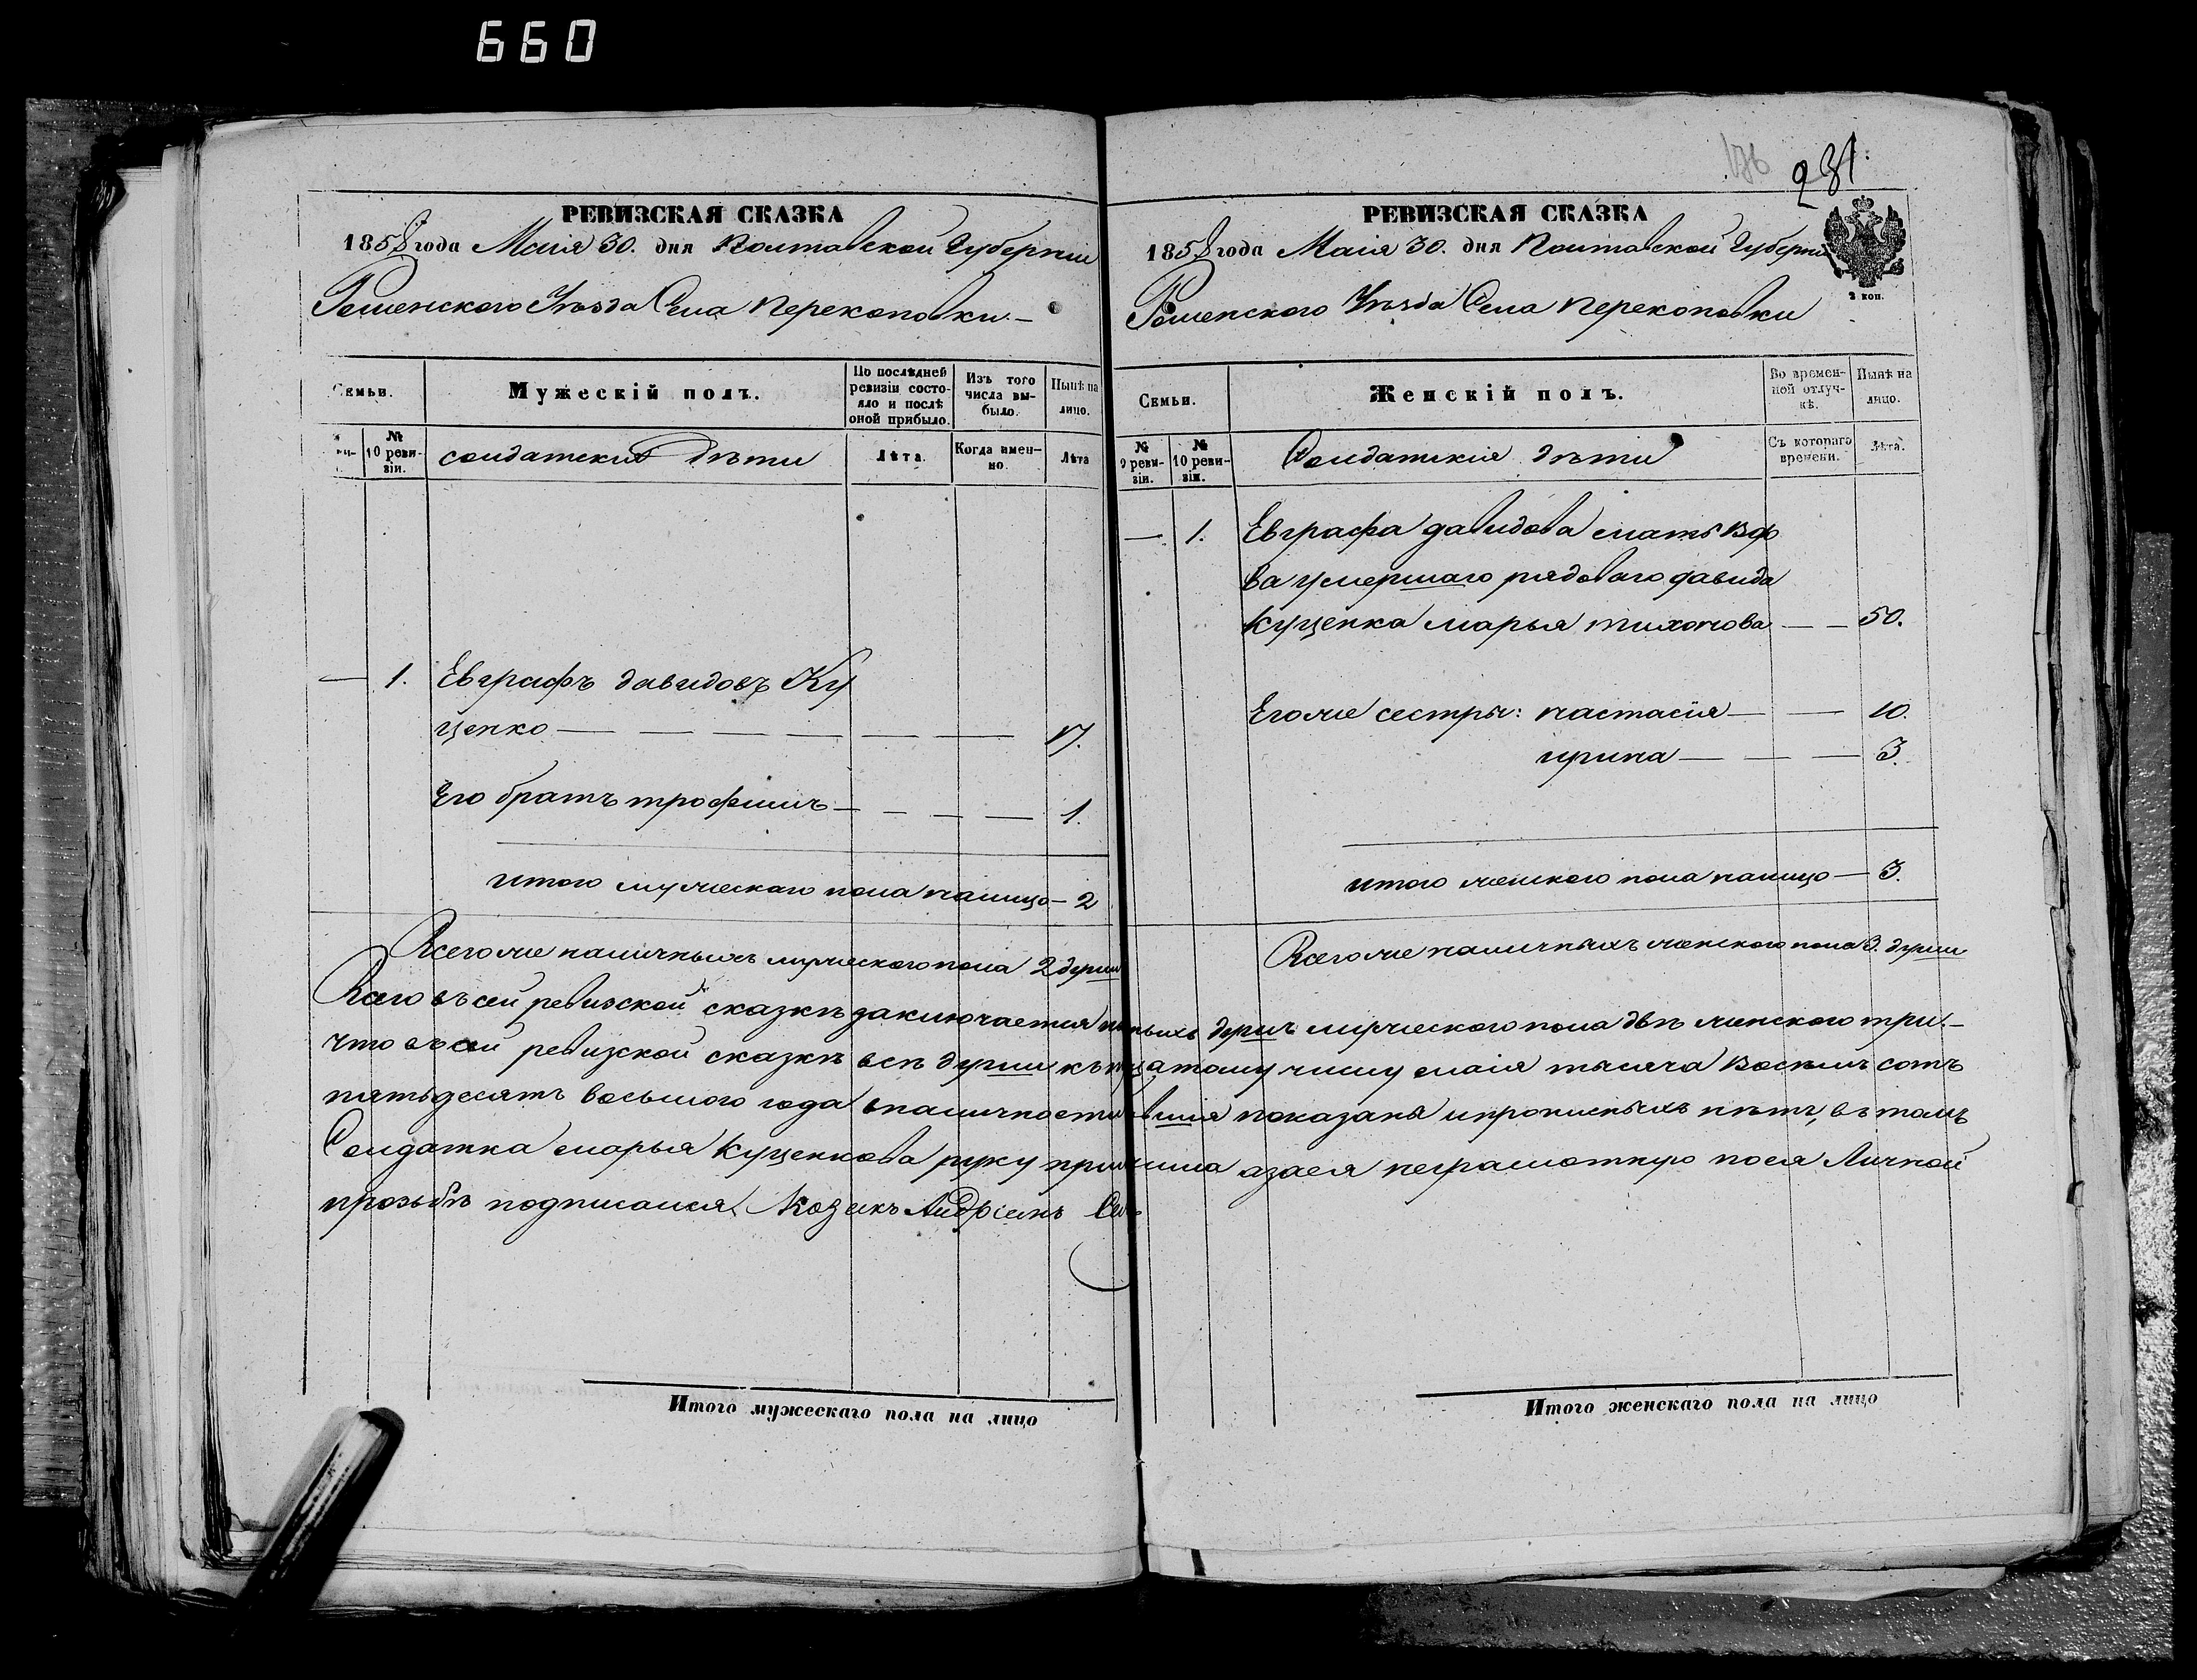 660
РЕВИЗСКАЯ СКАЗКА
1858 года Маія 30. дня Полтавской Губерніи
Роменского Уѣзда Села Перекоповки.—
Семьи.
Мужескій полъ.
По послѣдней ревизіи состояло и послѣ оной прибыло.
Изъ того числа выбыло.
Нынѣ на лицо.
№ 10 ревизіи.
солдатскія дѣти
Лѣта.
Когда именно.
Лѣта
— 1. Евграфъ давидовъ Ку
ценко — — — — — — — 17.
Его братъ трофимъ — — — — 1.
итого мужескаго пола налицо — 2
Всего же наличныхъ мужеского пола 2 души
Итого мужескаго пола на лицо
176
281.
РЕВИЗСКАЯ СКАЗКА
1858 года Маія 30. дня Полтавской Губерніи
2 коп.
Роменского Уѣзда Села Перекоповки
Семьи.
Женскій полъ.
Во временной отлучкѣ.
Нынѣ на лицо.
№ 9 ревизіи.
№ 10 ревизіи.
Солдатскія дѣти
Съ котораго времени.
Лѣта.
— 1. Евграфа давидова мать вдо
ва умершаго рядового давида
куценка марья тихонова — — 50.
Его же сестры: настасія — — 10.
ирина — — — 3.
итого женского пола налицо — 3.
Всего же наличныхъ женского пола 3. души
Всего въ сей ревизской сказкѣ заключается душъ мужеского пола двѣ женского три.—
что въ сей ревизской сказкѣ всѣ души къ числу маія тысяча восемъ сотъ
пятьдесятъ восьмого года показаны ипрописныхъ нѣтъ, въ томъ
Солдатка марья Куценкова руку азаея неграмотную поея Личной
прозьбѣ подписался Козакъ Андріянъ
Итого женскаго пола на лицо